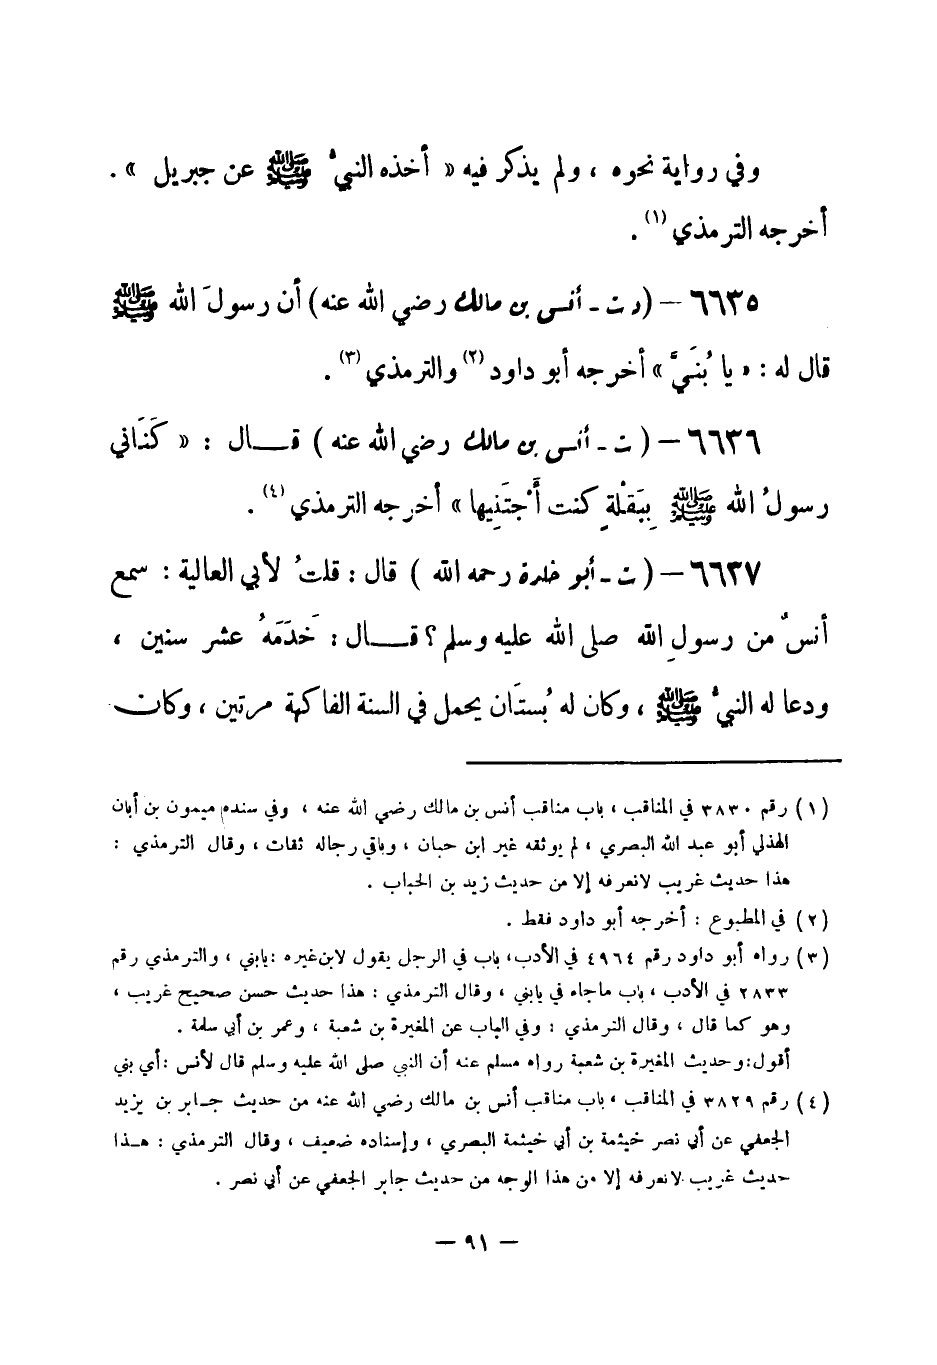 وفي رواية نحوه ، ولم يذكر فيه « أخذه النبيُّ ﷺ عن جبريل » .
أخرجه الترمذي (١) .
٦٦٣٥ – ( د ت ـ أنس بن مالك رضي الله عنه ) أن رسولَ الله ﷺ
قال له : « يا بُنَيَّ » أخرجه أبو داود (٢) والترمذي (٣) .
٦٦٣٦ – ( ت ـ أنس بن مالك رضي الله عنه ) قــال : « كَنَّاني
رسولُ الله ﷺ بِبَقْلةٍ كنت أَجْتَنِيها » أخرجه الترمذي (٤) .
٦٦٣٧ – ( ت ـ أبو خلدة رحمه الله ) قال : قلتُ لأبي العالية : سمع
أنسٌ من رسولِ الله صلى الله عليه وسلم ؟ قــال : خَدَمَهُ عشر سنين ،
ودعا له النبيُّ ﷺ ، وكان له بُستَان يحمل في السنة الفاكهة مرتين ، وكان
(١) رقم ٣٨٣٠ في المناقب ، باب مناقب أنس بن مالك رضي الله عنه ، وفي سنده ميمون بن أبان
الهذلي أبو عبد الله البصري ، لم يوثقه غير ابن حبان ، وباقي رجاله ثقات ، وقال الترمذي :
هذا حديث غريب لانعرفه إلا من حديث زيد بن الحباب .
(٢) في المطبوع : أخرجه أبو داود فقط .
(٣) رواه أبو داود رقم ٤٩٦٤ في الأدب، باب في الرجل يقول لابن غيره : يابني ، والترمذي رقم
٢٨٣٣ في الأدب ، باب ماجاء في يابني ، وقال الترمذي : هذا حديث حسن صحيح غريب ،
وهو كما قال ، وقال الترمذي : وفي الباب عن المغيرة بن شعبة ، وعمر بن أبي سلمة .
أقول: وحديث المغيرة بن شعبة رواه مسلم عنه أن النبي صلى الله عليه وسلم قال لأنس : أي بني
(٤) رقم ٣٨٢٩ في المناقب ، باب مناقب أنس بن مالك رضي الله عنه من حديث جـابر بن يزيد
الجعفي عن أبي نصر خيثمة بن أبي خيثمة البصري ، وإسناده ضعيف ، وقال الترمذي : هـذا
حديث غريب لانعرفه إلا من هذا الوجه من حديث جابر الجعفي عن أبي نصر .
– ٩١ –